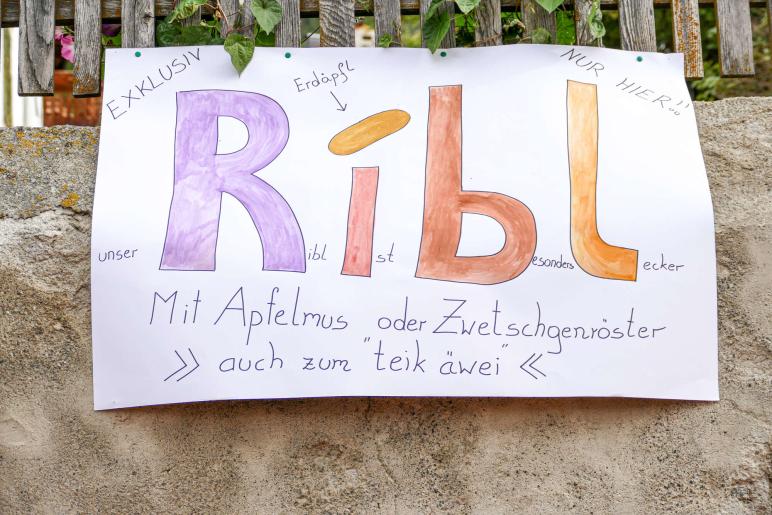 EXKLUSIV
Erdäpfl
NUR HIER!!
unser Ribl ist besonders Lecker
Mit Apfelmus oder Zwetschgenröster
>> auch zum "teik äwei" <<